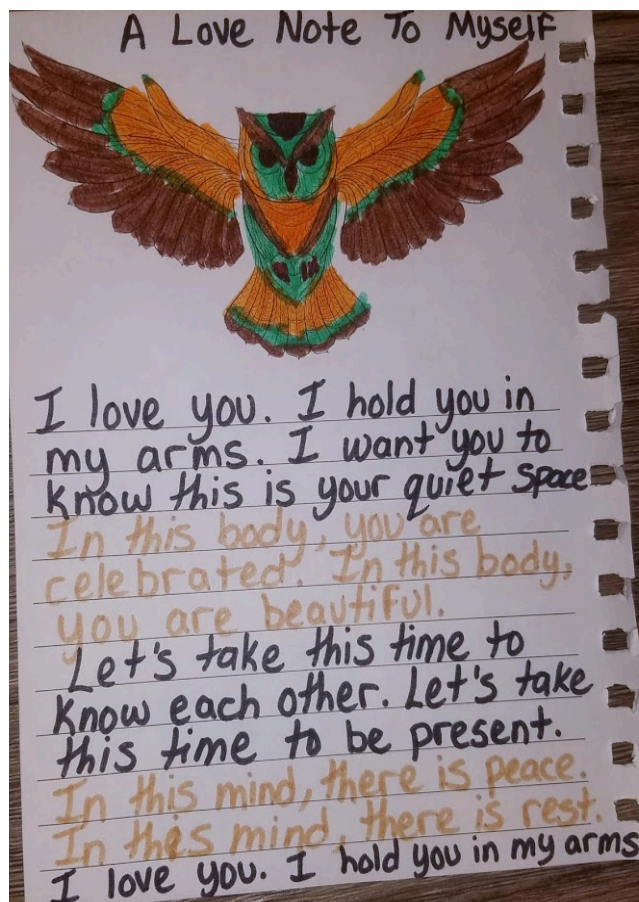 A Love Note To Myself
I love you. I hold you in
my arms. I want you to
know this is your quiet space
In this body, you are
celebrated. In this body,
you are beautiful.
Let's take this time to
know each other. Let's take
this time to be present.
In this mind, there is peace.
In this mind, there is rest.
I love you. I hold you in my arms